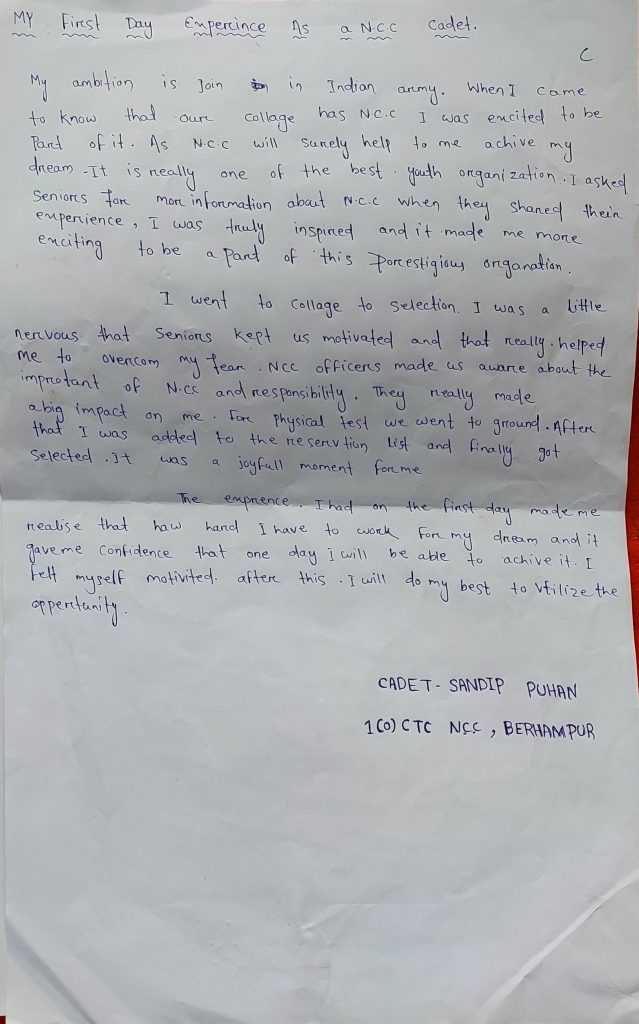 MY First Day Expercince As a N.C.C Cadet.
C
My ambition is Join in in Indian army. When I came
to know that our collage has N.C.C I was excited to be
Part of it. As N.C.C will surely help to me achive my
dream. It is really one of the best youth organization. I asked
Seniors for more information about N.C.C when they shared their
experience, I was truly inspired and it made me more
exciting to be a part of this Porcestigious organation.
I went to collage to selection. I was a little
nervous that Seniors kept us motivated and that really helped
me to overcom my fear. NCC officers made us aware about the
improtant of N.CC and responsibility. They really made
a big impact on me. For physical test we went to ground. After
that I was added to the reservtion list and finally got
Selected. It was a joyfull moment for me
The exprence. I had on the first day made me
realise that haw hard I have to work For my dream and it
gave me Confidence that one day I will be able to achive it. I
felt myself motivited. after this. I will do my best to Utilize the
oppertunity.
CADET- SANDIP PUHAN
1(O) CTC NCC, BERHAMPUR